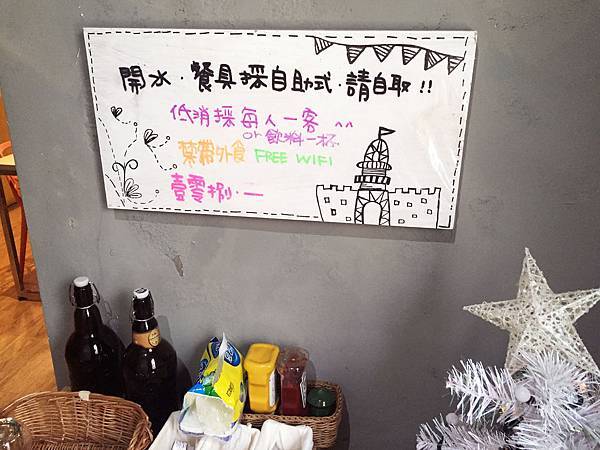 開水.餐具採自助式.請自取!!
低消採每人一客 ^^
or飲料一杯
禁帶外食 FREE WIFI
壹零捌.一